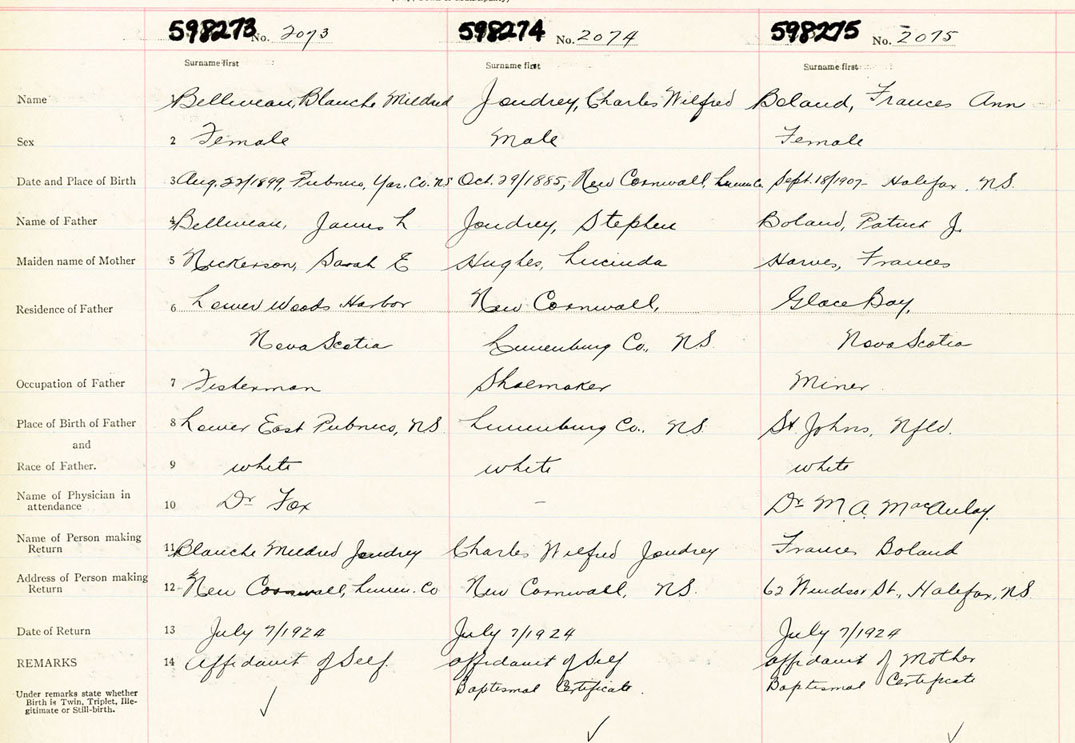 598273 No. 2073 598274 No. 2074 598275 No. 2075
Surname first Surname first Surname first
Name 1 Belliveau, Blanche Mildred Joudrey, Charles Wilfred Boland, Frances Ann
Sex 2 Female Male Female
Date and Place of Birth 3 Aug. /1899, Pubnico, Yar. Co. NS Oct. 29/1885, New Cornwall, Lunen Co. Sept. 18/1907 - Halifax, NS.
Name of Father 4 Belliveau, James L Joudrey, Stephen Boland, Patrick J.
Maiden name of Mother 5 Nickerson, Sarah E Hughes, Lucinda Frances
Residence of Father 6 Lower Woods Harbor New Cornwall, Glace Bay,
Nova Scotia Lunenburg Co., NS. Nova Scotia
Occupation of Father 7 Fisherman Shoemaker Miner
Place of Birth of Father 8 Lower East Pubnico, NS. Lunenburg Co., NS. St Johns, Nfld.
and
Race of Father. 9 white white white
Name of Physician in
attendance 10 Dr Fox - Dr M. A. MacAulay.
Name of Person making
Return 11 Blanche Mildred Joudrey Charles Wilfred Joudrey Frances Boland
Address of Person making
Return 12 New Cornwall, Lunen. Co New Cornwall, NS. 62 Windsor St., Halifax, NS
Date of Return 13 July 7/1924 July 7/1924 July 7/1924
REMARKS 14 Affidavit of Self. affidavit of Self affidavit of Mother
Baptismal Certificate. Baptismal Certificate
Under remarks state whether
Birth is Twin, Triplet, Ille-
gitimate or Still-birth.